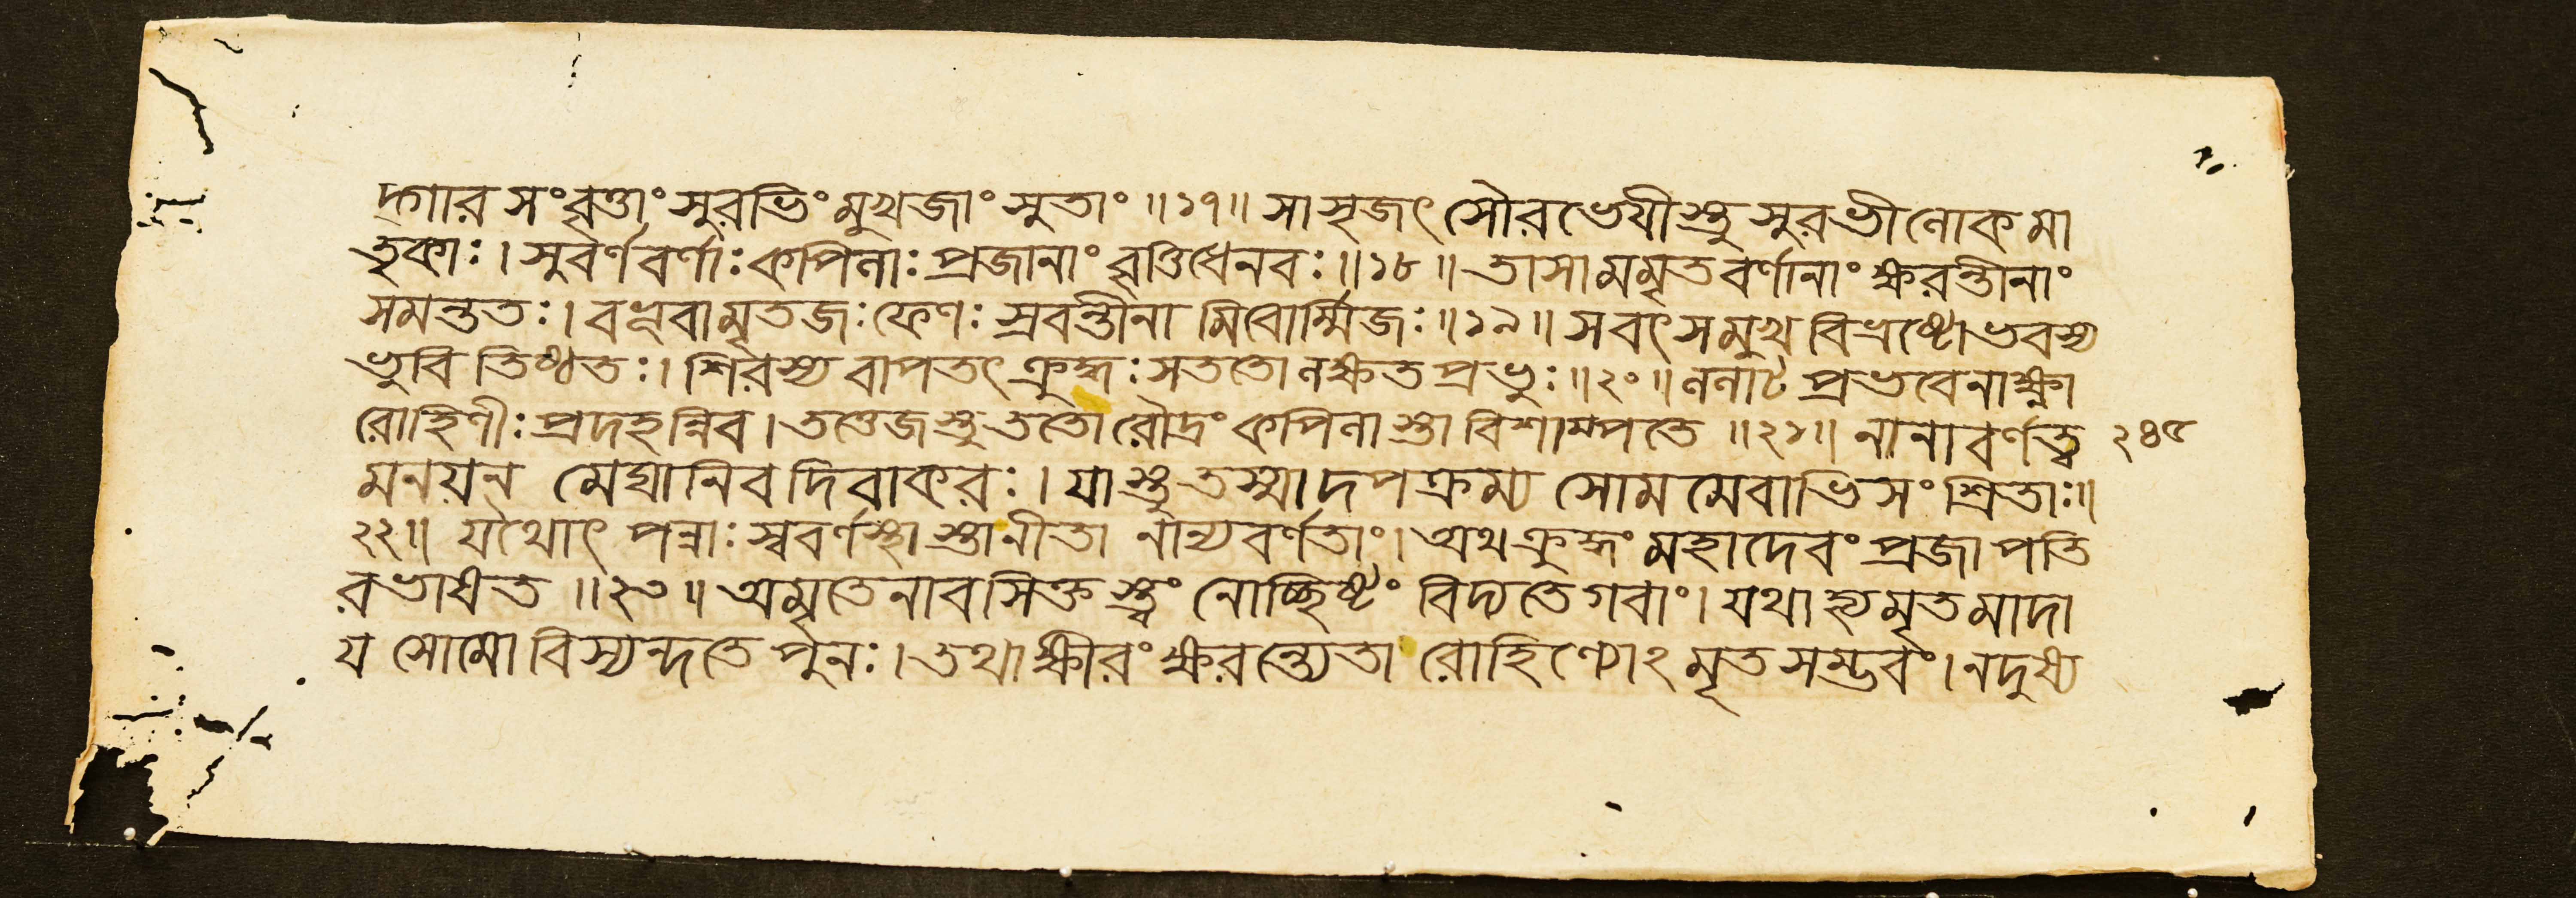 দ্গার সংবৃত্তাং সুরভিং মুখজাং সুতাং ॥১৭॥ সাসৃজৎ সৌরভেযীস্তু সুরভীলোকমা
তৃকাঃ। সুবর্ণবর্ণাঃ কপিলাঃ প্রজানাং বৃত্তিধেনবঃ ॥১৮॥ তাসামমৃতবর্ণানাং ক্ষরন্তীনাং
সমন্ততঃ। বভূবামৃতজঃ ফেণঃ স্রবন্তীনামিবোর্ম্মিজঃ ॥১৯॥ সবৎসমুখবিভ্রষ্টোভবস্য
ভুবি তিষ্ঠতঃ। শিরস্যবাপতৎ ক্রুদ্ধঃ সততোলক্ষত প্রভুঃ ॥২০॥ ললাটপ্রভবেনাক্ষ্ণা
রোহিণীঃ প্রদহন্নিব। তত্তেজস্তু ততো রৌদ্রং কপিলাস্তা বিশাম্পতে ॥২১॥ নানাবর্ণত্ব ২৪৫
মনয়ন মেঘানিব দিবাকরঃ। যাস্তু তস্মাদপক্রম্য সোমমেবাভিসংশ্রিতাঃ॥
২২॥ যথোৎপন্নাঃ স্ববর্ণস্থাস্তানীতা নান্যবর্ণতাং। অথ ক্রুদ্ধং মহাদেবং প্রজাপতি
রভাষত ॥২৩॥ অমৃতেনাবসিক্তস্ত্বং নোচ্ছিষ্টং বিদ্যতে গবাং। যথাহ্যমৃতমাদা
য সোমো বিস্যন্দতে পুনঃ। তথা ক্ষীরং ক্ষরন্ত্যেতা রোহিণ্যোঽমৃতসম্ভবং। নদুষ্য